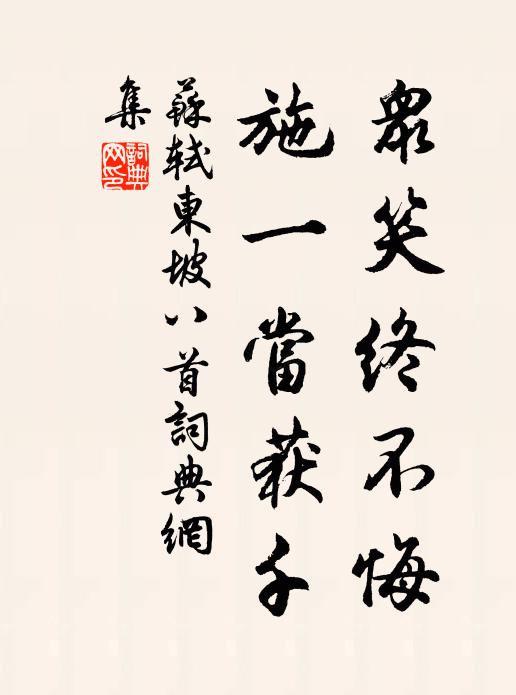 眾笑終不悔
施一當获千
蘇軾東坡八首詞典網
集
詞典
网印